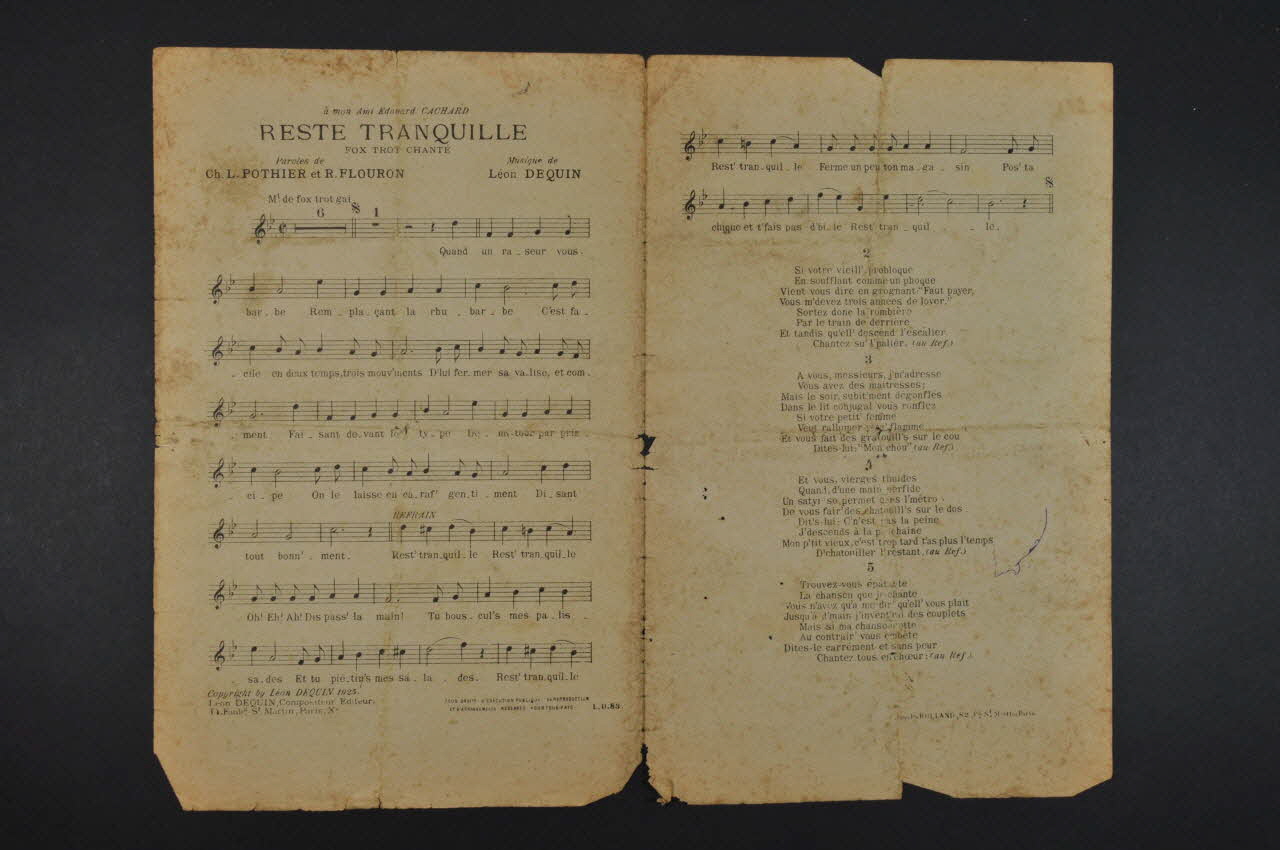 à mon Ami Edouard CACHARD
RESTE TRANQUILLE
FOX TROT CHANTÉ
Paroles de
Ch. L. POTHIER et R. FLOURON
Musique de
Léon DEQUIN
Mt de fox trot gai
6 1
Quand un ra_seur vous.
bar_be Rem_pla_çant la rhu_bar_be C'est fa_
_cile en deux temps, trois mouv'ments D'lui fer_mer sa va_lise, et com_
_ment Fai_sant de_vant le ty_pe De_mi-tour par prin_
_ci_pe On le laisse en ca_raf' gen_ti_ment Di_sant
REFRAIN
tout bonn'_ment. Rest' tran_quil_le Rest' tran_quil_le
Oh! Eh! Ah! Dis pass' la main! Tu bous_cul's mes pa_lis_
_sa_des Et tu pié_tin's mes sa_la_des. Rest' tran_quil_le
Copyright by Léon DEQUIN 1925.
Léon DEQUIN, Compositeur Editeur.
Faubg St Martin, Paris, Xe
TOUS DROITS D'EXÉCUTION PUBLIQUE DE REPRODUCTION
ET D'ARRANGEMENTS RÉSERVÉS POUR TOUS PAYS.
L.D.83
Rest' tran_quil_le Ferme un peu ton ma_ga_sin Pos' ta
chique et t'fais pas d'bi_le Rest' tran_quil_le.
2
Si votre vieill' probloque
En soufflant comme un phoque
Vient vous dire en grognant: "Faut payer,
Vous m'devez trois années de loyer."
Sortez donc la rombière
Par le train de derrière
Et tandis qu'ell' descend l'escalier
Chantez su' l'palier. (au Ref.)
3
A vous, messieurs, j'm'adresse
Vous avez des maitresses;
Mais le soir, subit'ment dégonflés
Dans le lit conjugal vous ronflez
Si votre petit' femme
Veut rallumer vot' flamme
Et vous fait des gratouill's sur le cou
Dites-lui: "Mon chou" (au Ref.)
4
Et vous, vierges timides
Quand, d'une main perfide
Un satyr' se permet dans l'métro
De vous fair' des chatouill's sur le dos
Dit's-lui: C'n'est pas la peine
J'descends à la prochaine
Mon p'tit vieux, c'est trop tard t'as plus l'temps
D'chatouiller l'restant. (au Ref.)
5
Trouvez-vous épatante
La chanson que je chante
Vous n'avez qu'à me dir' qu'ell' vous plait
Jusqu'à d'main j'invent'rai des couplets
Mais si ma chansonnette
Au contrair' vous embête
Dites-le carrément et sans peur
Chantez tous en chœur: (au Ref.)
ROLLAND, 82, Fg St Martin, Paris